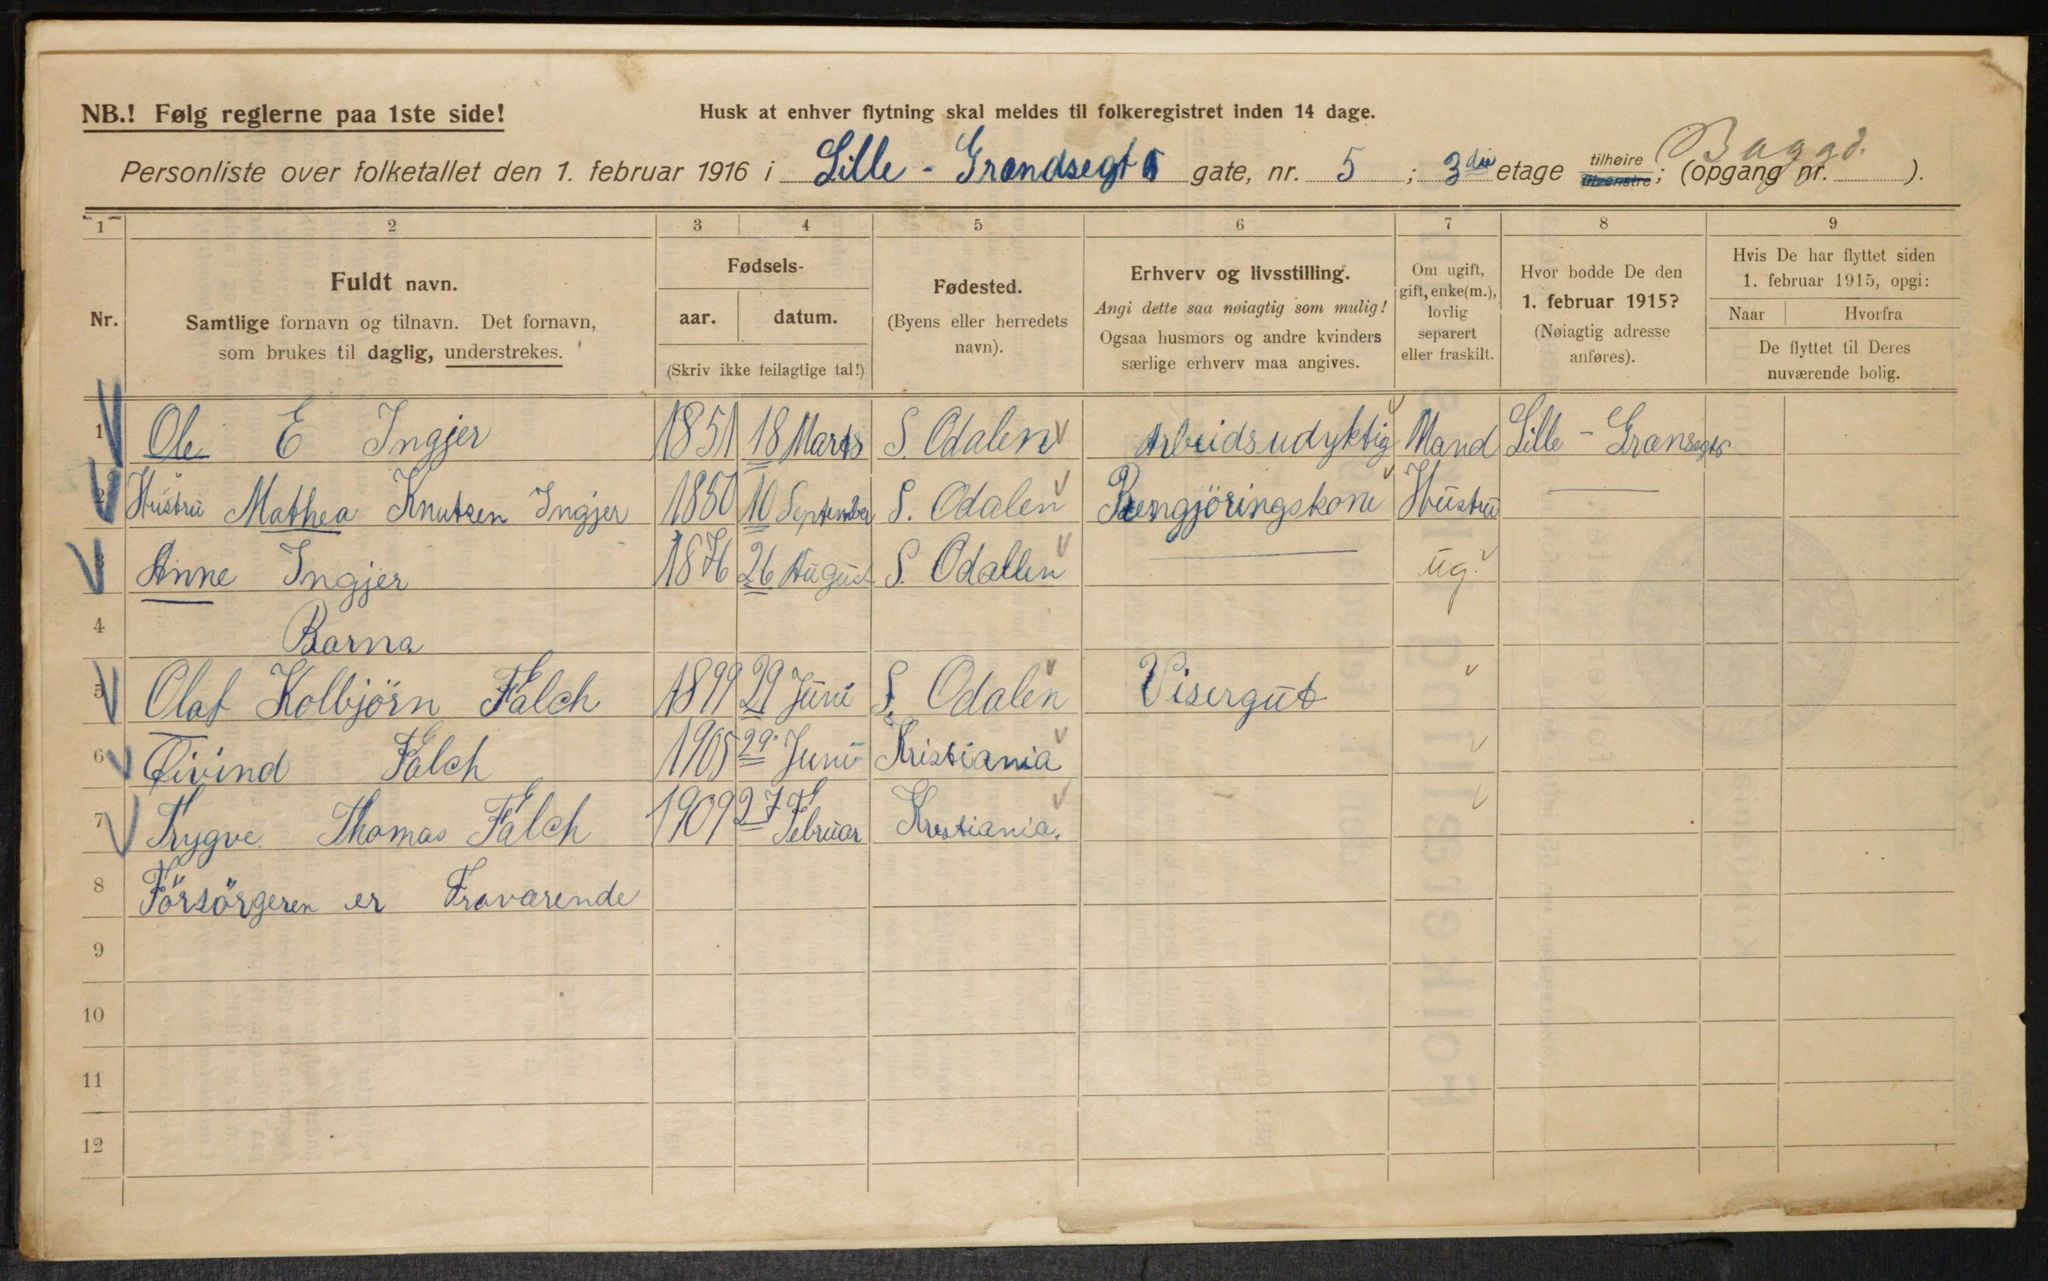 NB.! Følg reglerne paa 1ste side! Husk at enhver flytning skal meldes til folkeregistret inden 14 dage.
Personliste over folketallet den 1. februar 1916 i Lille - Grændsegt gate, nr. 5 ; 3die etage tilhøire tilvenstre; (opgang nr. ). Baggd.
1 2 3 4 5 6 7 8 9
Nr. Fuldt navn. Samtlige fornavn og tilnavn. Det fornavn, som brukes til daglig, understrekes.
Fødsels- aar. datum. (Skriv ikke feilagtige tal!)
Fødested. (Byens eller herredets navn).
Erhverv og livsstilling. Angi dette saa nøiagtig som mulig! Ogsaa husmors og andre kvinders særlige erhverv maa angives.
Om ugift, gift, enke(m.), lovlig separert eller fraskilt.
Hvor bodde De den 1. februar 1915? (Nøiagtig adresse anføres).
Hvis De har flyttet siden 1. februar 1915, opgi: Naar Hvorfra De flyttet til Deres nuværende bolig.
1 Ole E Ingjer 1851 18 Marts S. Odalen Arbeidsudyktig Mand Lille - Grænsegt
2 Hustru Mathea Knutsen Ingjer 1850 10 September S. Odalen Rengjöringskone Hustru
3 Anne Ingjer 1876 26 August S. Odallen ug.
4 Barna
5 Olaf Kolbjörn Falch 1899 29 Juni S. Odalen Visergut
6 Øivind Falch 1905 29. Juni Kristiania
7 Trygve Thomas Falch 1909 27 Februar Kristiania.
8 Försörgeren er Fraværende
9
10
11
12